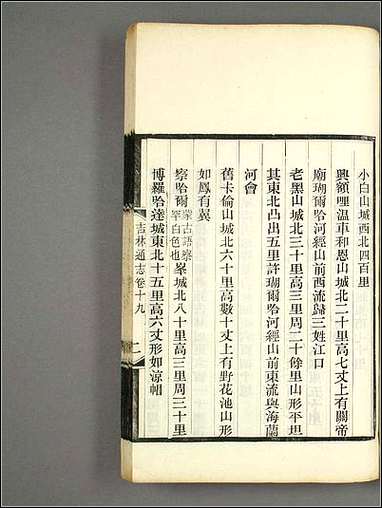 小白山城西北四百里
興額哩溫車和恩山城北二十里高七丈上有關帝
廟瑚爾哈河經山前西流歸三姓江口
老黑山城北三十里高三里周二十餘里山形平坦
其東北凸出五里許瑚爾哈河經山前東流與海蘭
河會
舊卡倫山城北六十里高數十丈上有野花池山形
如鳳有翼
察哈爾蒙古語察罕白色也峯城北八十里高三里周三十里
博羅哈達城東北十五里高六丈形如涼帽
吉林通志卷十九
二